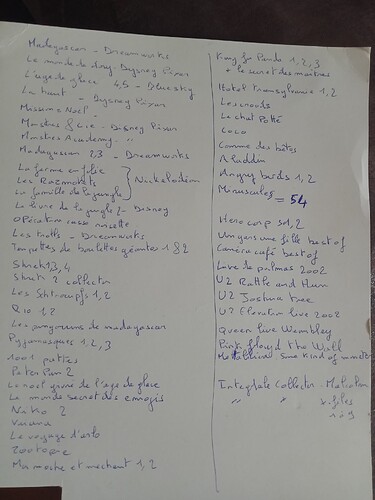 Madagascar - Dreamworks
Le monde de dory - Dysney Pixar
L'age de glace 4,5 - Bluesky
Là haut - Dysney Pixar
Mission Noël -
Monstres & Cie - Disney Pixar
Monstres Academy - "
Madagascar 23 - Dreamworks
La ferme en folie
Les Razmokets
La famille de la jungle
Nickelodéon
Le livre de la jungle 2 - Disney
Opération casse noisette
Les trolls - Dreamworks
Tempettes de boulettes géantes 1 & 2
Shrek 1 3, 4
Shrek 2 collector
Les Schtroupfs 1, 2
Rio 1, 2
Les pingouins de madagascar
Pyjamasques 1, 2, 3
1001 pattes
Peter Pan 2
Le noel givré de l'age de glace
Le monde secret des emojis
Niko 2
Vaiana
Le voyage d'arlo
Zootopie
Moi moche et mechant 1, 2
Kung Fu Panda 1, 2, 3
+ le secret des maitres
Hotel Transylvanie 1, 2
Les croods
Le chat Potté
Coco
Comme des bêtes
Aladdin
Angry birds 1, 2
Minuscules
= 54
Hero corp s1, 2
Un gars une fille best of
Caméra café best of
Love de palmas 2002
U2 Rattle and Hum
U2 Joshua tree
U2 Elevation live 2002
Queen live Wembley
Pink floyd the Wall
Metallica some kind of monster
Integrale Collector
" " x.files
1 à 9